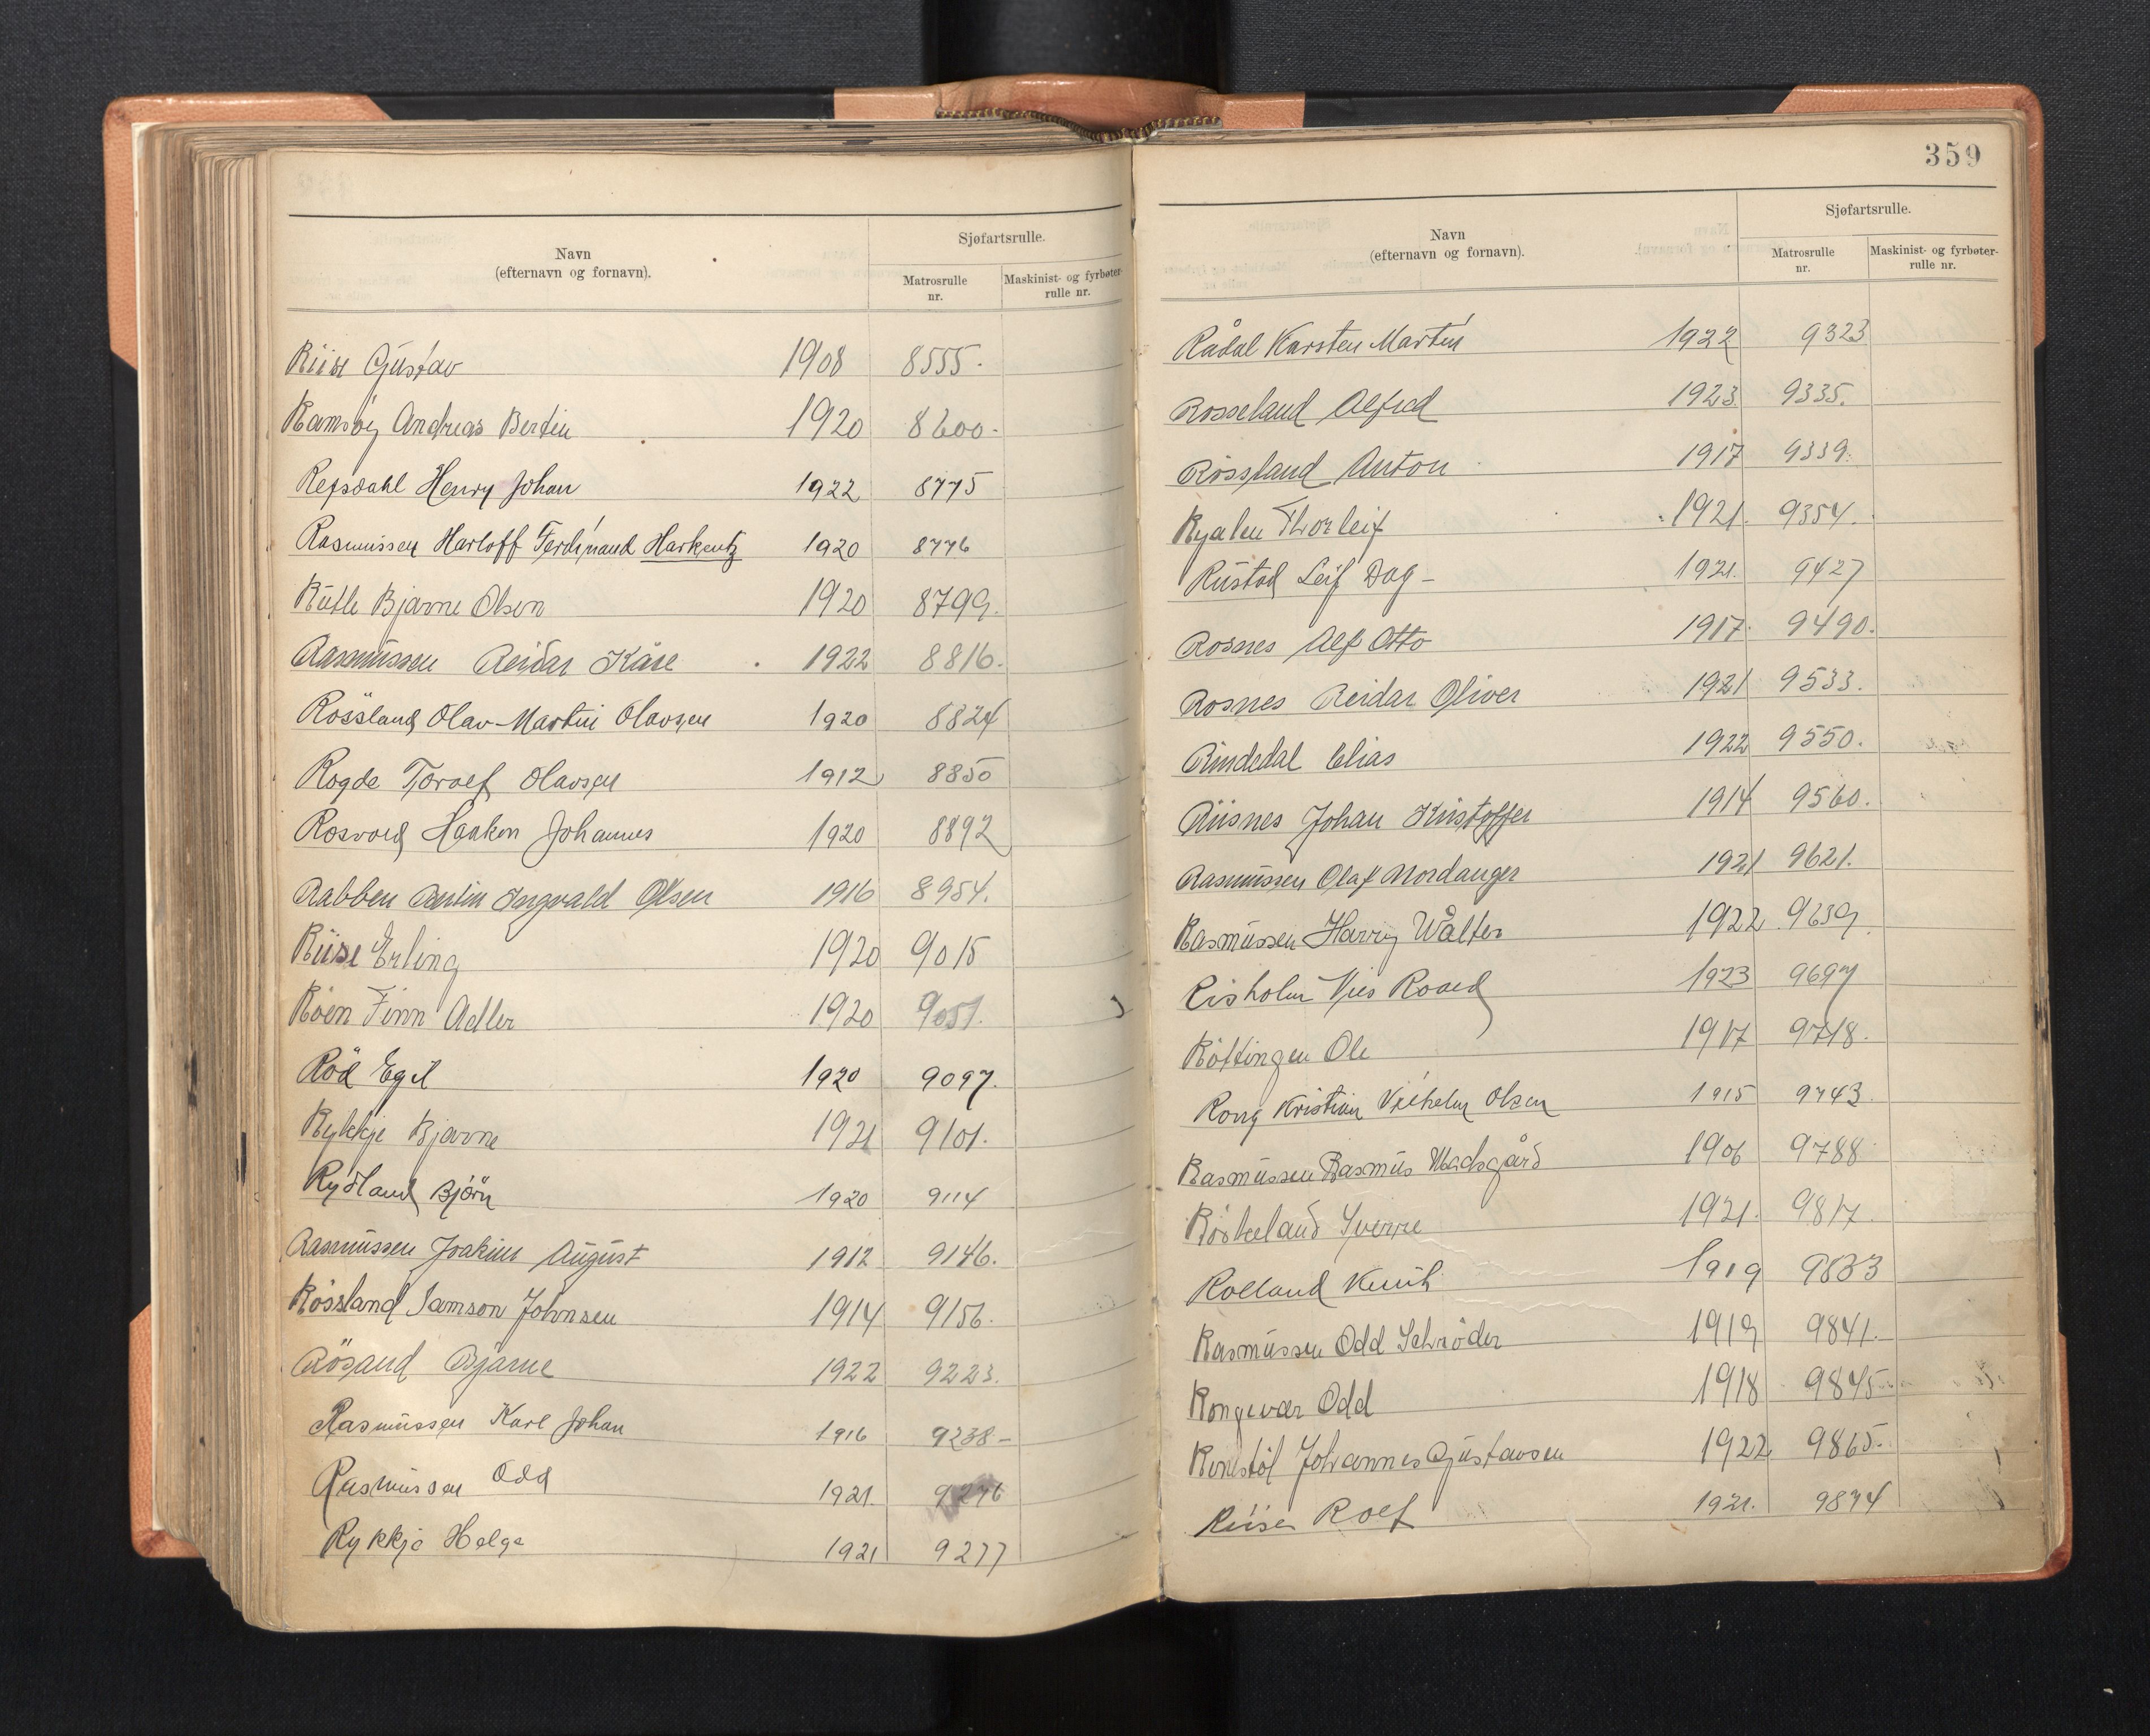 Navn
(efternavn og fornavn).
Sjøfartsrulle.
Matrosrulle
nr.
Maskinist- og fyrbøter-
rulle nr.
Riise Gustav 1908 8555.
Ramsøy Andreas Bertin 1920 8600.
Refsdahl Henry Johan 1922 8775
Rasmussen Harloff Ferdinand Harkentz 1920 8776
Rutle Bjarne Olsen 1920 8799.
Rasmussen Reidar Kåre 1922 8816.
Rössland Olav-Martin Olavsen 1920 8824
Rogde Torolf Olavsen 1912 8850
Rosvold Haakon Johannes 1920 8892
Rabben Antin Ingvald Olsen 1916 8954.
Riise Erling 1920 9015
Röen Finn Adler 1920 9051.
Röd Egil 1920 9097.
Rykkje Bjarne 1921 9101.
Rydland Björn 1920 9114
Rasmussen Joakim August 1912 9146.
Rössland Samson Johnsen 1914 9156.
Rösand Bjarne 1922 9223.
Rasmussen Karl Johan 1916 9238-
Rasmussen Odd 1921. 9276
Rykkje Helge 1921 9277
359
Navn
(efternavn og fornavn).
Sjøfartsrulle.
Matrosrulle
nr.
Maskinist- og fyrbøter-
rulle nr.
Rådal Karsten Martin 1922 9323
Rosseland Alfred 1923 9335.
Rössland Anton 1917 9339.
Ryalen Thorleif 1921. 9354.
Rustad Leif Dag- 1921. 9427
Rosnes Alf Otto 1917. 9490.
Rosnes Reidar Oliver 1921 9533.
Rindedal Elias 1922 9550.
Riisnes Johan Kristoffer 1914 9560.
Rasmussen Olaf Nordanger 1921 9621.
Rasmussen Harry Walter 1922 9639.
Risholm Roald 1923 9697
Röttingen Ole 1917 9718.
Rong Kristian Vilhelm Olsen 1915 9743
Rasmussen Rasmus Madsgård 1906 9788
Röskeland Sverre 1921. 9817.
Rolland 1919 9833
Rasmussen Odd Schröder 1919 9841.
Rongevær Odd 1918 9845
Johannes Gustavsen 1922 9865.
Riise Rolf 1921. 9874